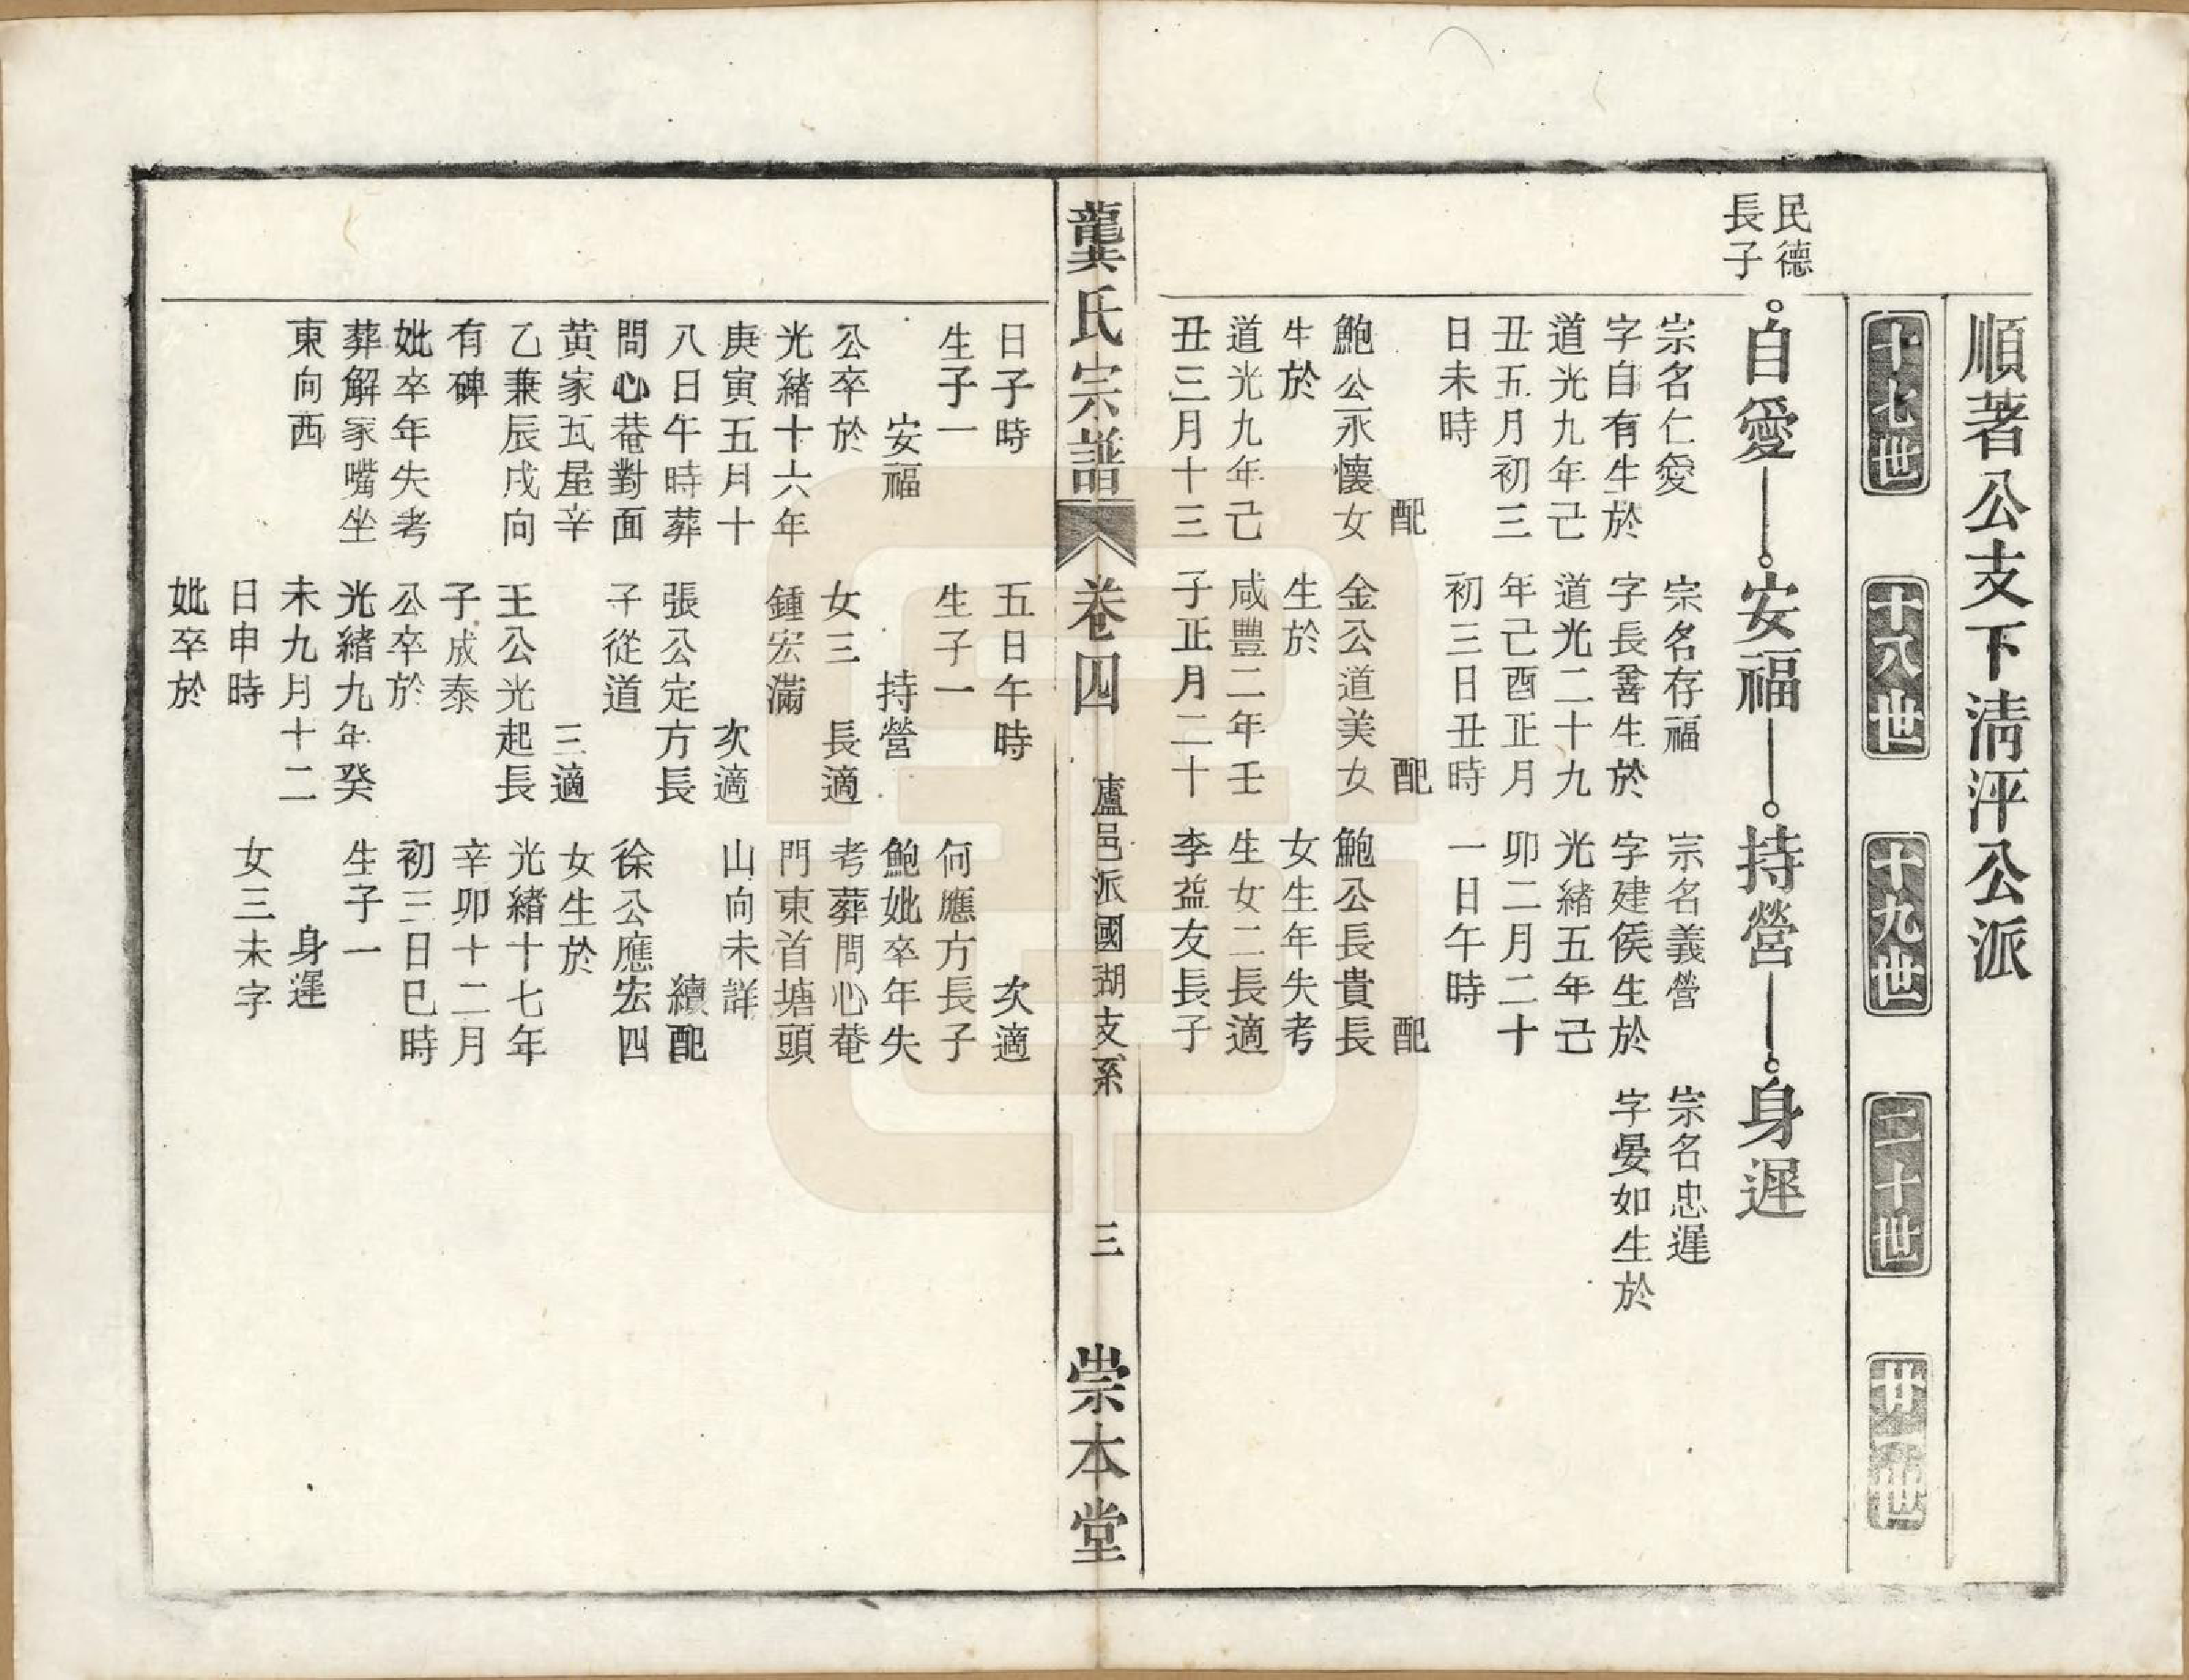 順著公支下清泙公派
十七世
十八世
十九世
二十世
廿一世
民德
長子
自愛
安福
持營
身遲
宗名仁愛
字自有生於
道光九年己
丑五月初三
日未時
配
鮑公永懷女
生於
道光九年己
丑三月十三
宗名存福
字長善生於
道光二十九
年己酉正月
初三日丑時
配
金公道美女
生於
咸豐二年壬
子正月二十
宗名義營
字建侯生於
光緒五年己
卯二月二十
一日午時
配
鮑公長貴長
女生年失考
生女二長適
李益友長子
宗名忠遲
字晏如生於
龔氏宗譜
卷四
廬邑派國瑚支系
三
崇本堂
日子時
生子一
安福
公卒於
光緒十六年
庚寅五月十
八日午時葬
問心菴對面
黃家瓦屋辛
乙兼辰戌向
有碑
妣卒年失考
葬解家嘴坐
東向西
五日午時
生子一
持營
女三　長適
鍾宏滿
次適
張公定方長
子從道
三適
王公光起長
子成泰
公卒於
光緒九年癸
未九月十二
日申時
妣卒於
次適
何應方長子
鮑妣卒年失
考葬問心菴
門東首塘頭
山向未詳
續配
徐公應宏四
女生於
光緒十七年
辛卯十二月
初三日巳時
生子一
身遲
女三未字